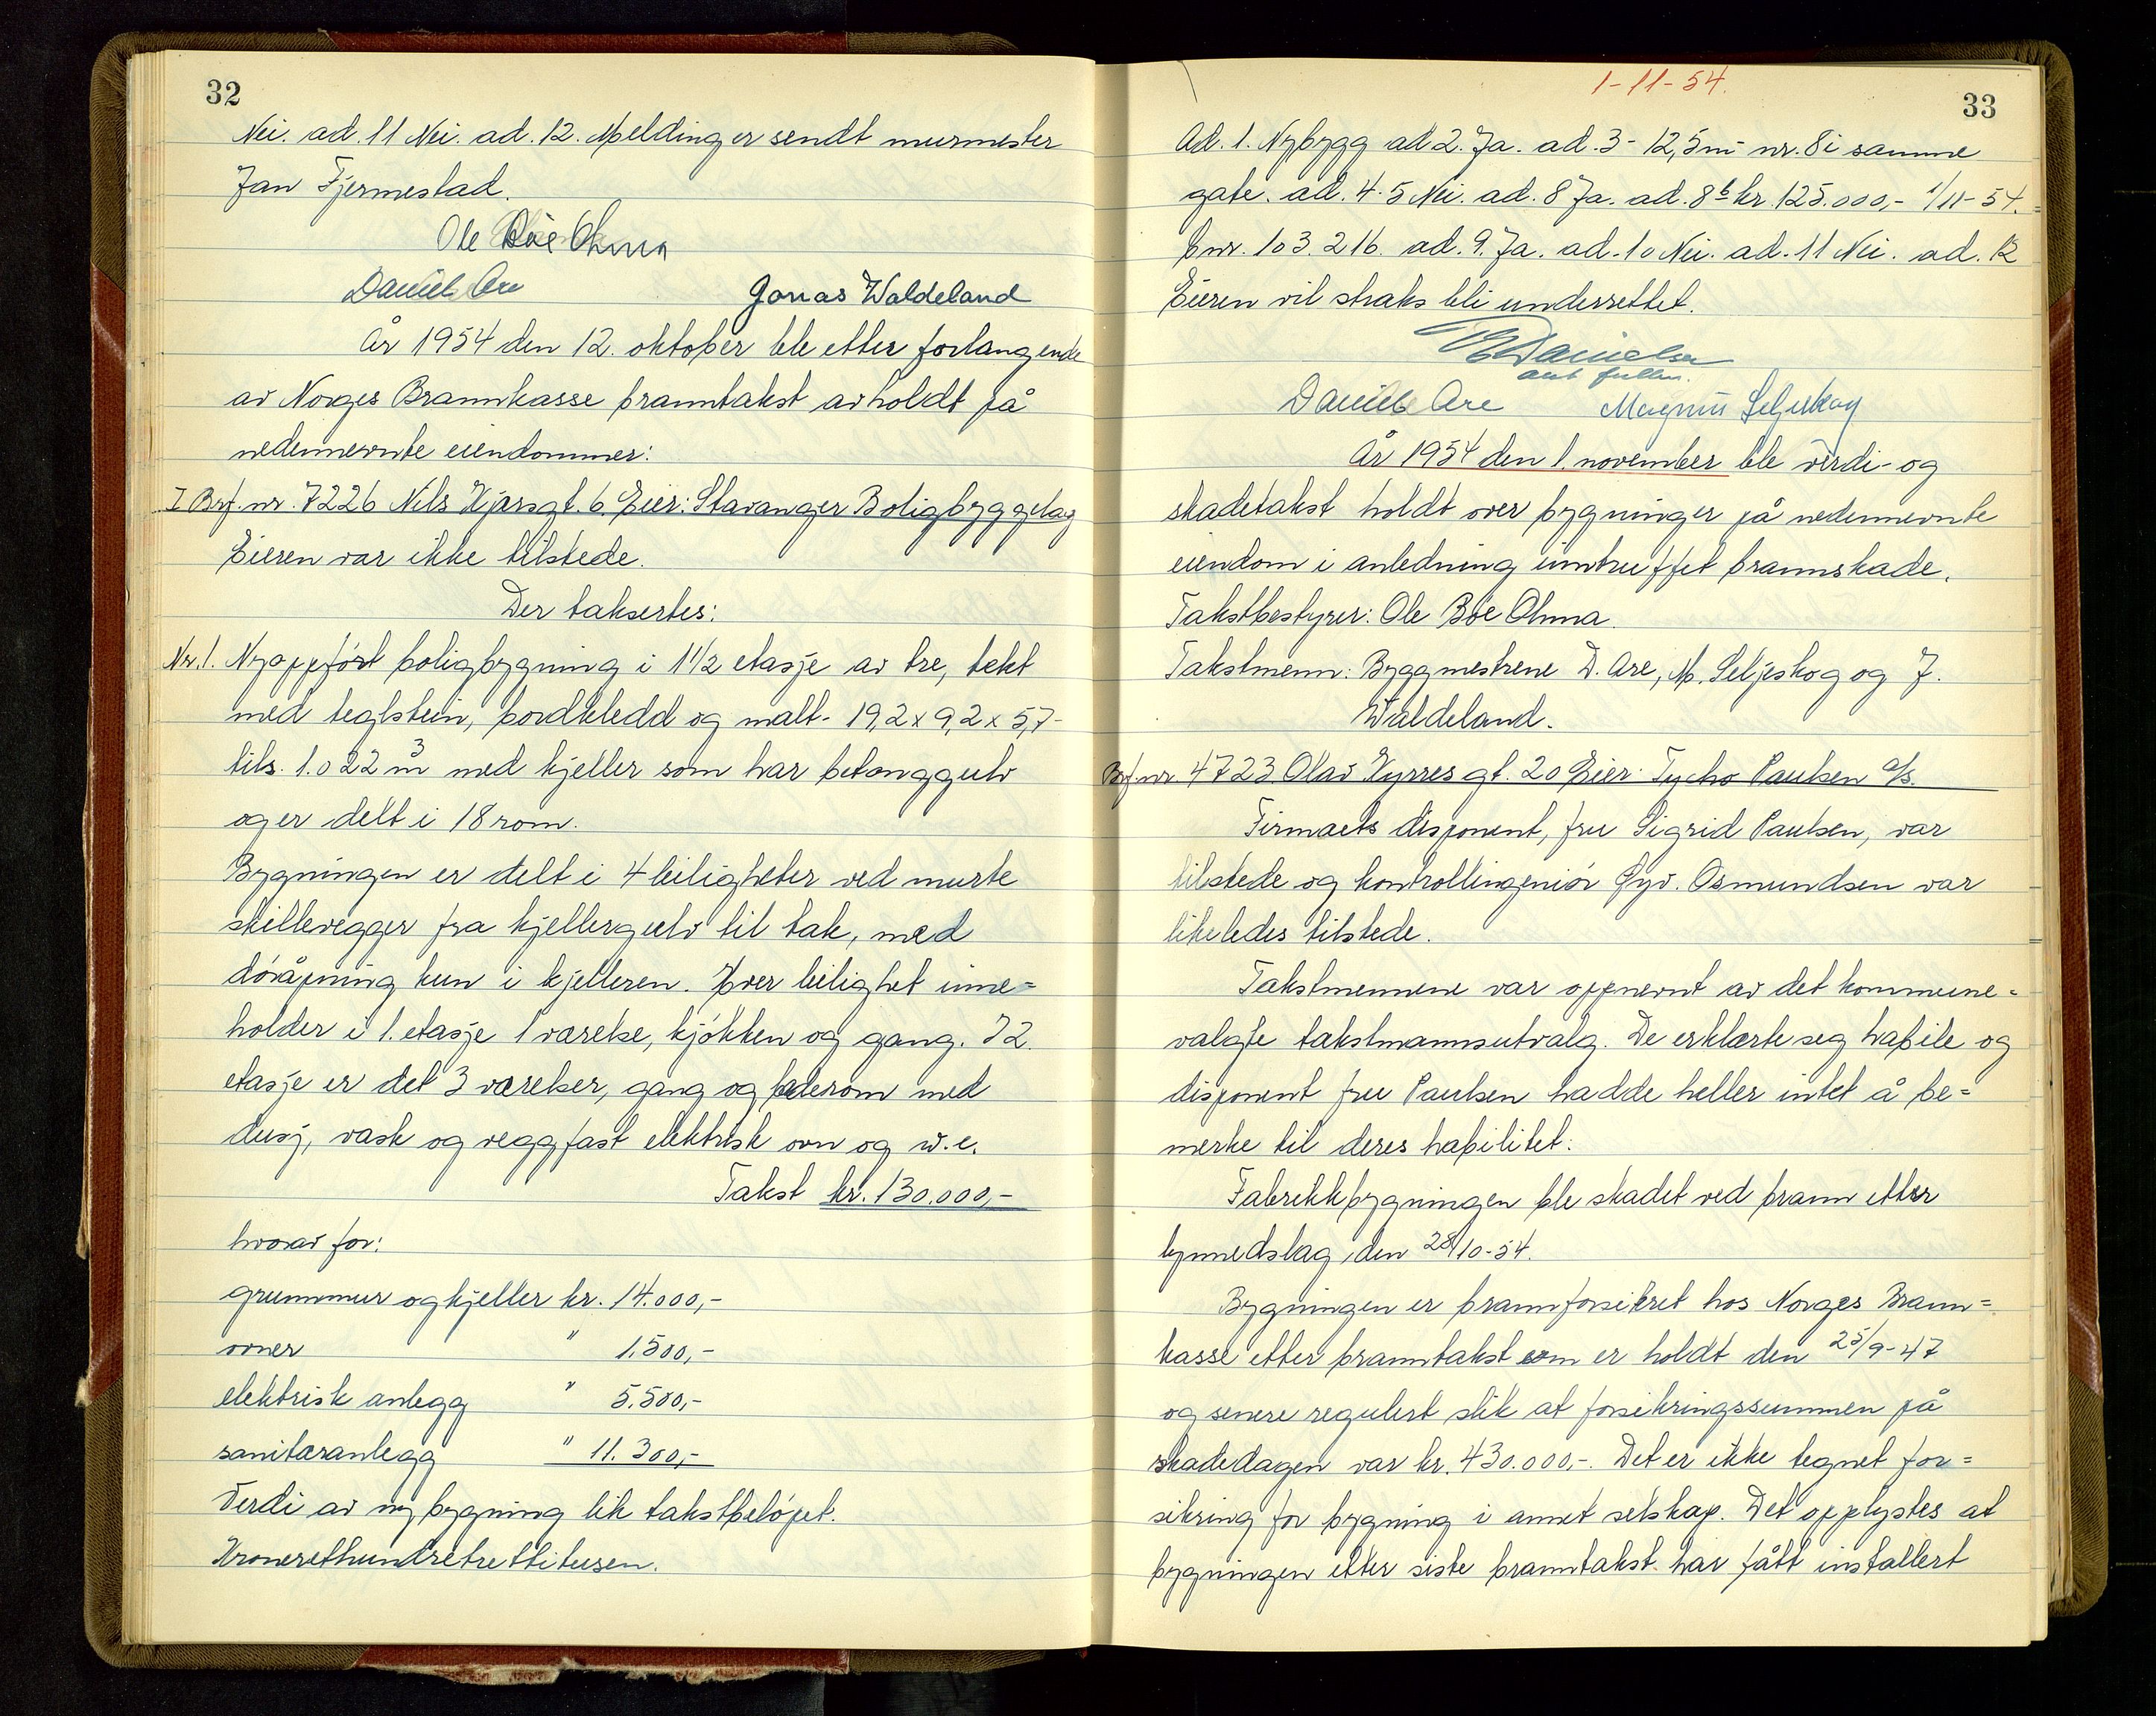 32
Nei. ad. 11 Nei. ad. 12. Melding er sendt murmester
Jan Fjermestad.
Ole Bøe Ohma
Daniel Are Jonas Waldeland
År 1954 den 12. oktober ble etter forlangende
av Norges Brannkasse branntakst avholdt på
nedennevnte eiendommer:
I Brf. nr. 7226 Nils Kjærsgt. 6. Eier: Stavanger Boligbyggelag
Eieren var ikke tilstede.
Der taksertes:
Nr. 1. Nyoppført boligbygning i 1 1/2 etasje av tre, tekt
med teglstein, bordkledd og malt - 19,2 x 9,2 x 5,7 -
tils. 1.022 m3 med kjeller som har betonggulv
og er delt i 18 rom.
Bygningen er delt i 4 leiligheter ved murte
skillevegger fra kjellergulv til tak, med
døråpning kun i kjelleren. Hver leilighet inne=
holder i 1. etasje 1 værelse, kjøkken og gang. I 2.
etasje er det 3 værelser, gang og baderom med
dusj, vask og veggfast elektrisk ovn og w.c.
Takst kr. 130.000,-
hvorav for:
grunnmur og kjeller kr. 14.000,-
ovner " 1.500,-
elektrisk anlegg " 5.500,-
sanitæranlegg " 11.300,-
Verdi av ny bygning lik takstbeløpet.
Kroneretthundretrettitusen.
1-11-54.
33
Ad. 1. Nybygg ad 2. Ja. ad. 3 - 12,5 m - nr. 8 i samme
gate. ad. 4. 5 Nei. ad. 8 Ja. ad. 8b kr. 125.000,- 1/11-54.
bnr. 103.216. ad. 9. Ja. ad. 10 Nei. ad. 11 Nei. ad. 12
Eieren vil straks bli underrettet.
Danielsen
Daniel Are Magnus Seljeskog
År 1954 den 1. november ble verdi- og
skadetakst holdt over bygninger på nedennevnte
eiendom i anledning inntruffet brannskade.
Takstbestyrer: Ole Bøe Ohma.
Takstmenn: Byggmestrene D. Are, M. Seljeskog og J.
Waldeland.
Brf. nr. 4723 Olav Kyrres gt. 20 Eier: Tycho Paulsen a/s.
Firmaets disponent, fru Sigrid Paulsen, var
tilstede og kontrollingeniør Øyv. Osmundsen var
likeledes tilstede.
Takstmennene var oppnevnt av det kommune=
valgte takstmannsutvalg. De erklærte seg habile og
disponent fru Paulsen hadde heller intet å be=
merke til deres habilitet.
Fabrikkbygningen ble skadet ved brann etter
lynnedslag den 28/10-54.
Bygningen er brannforsikret hos Norges Brann=
kasse etter branntakst som er holdt den 25/9-47
og senere regulert slik at forsikringssummen på
skadedagen var kr. 430.000,-. Det er ikke tegnet for=
sikring for bygning i annet selskap. Det opplystes at
bygningen etter siste branntakst har fått installert